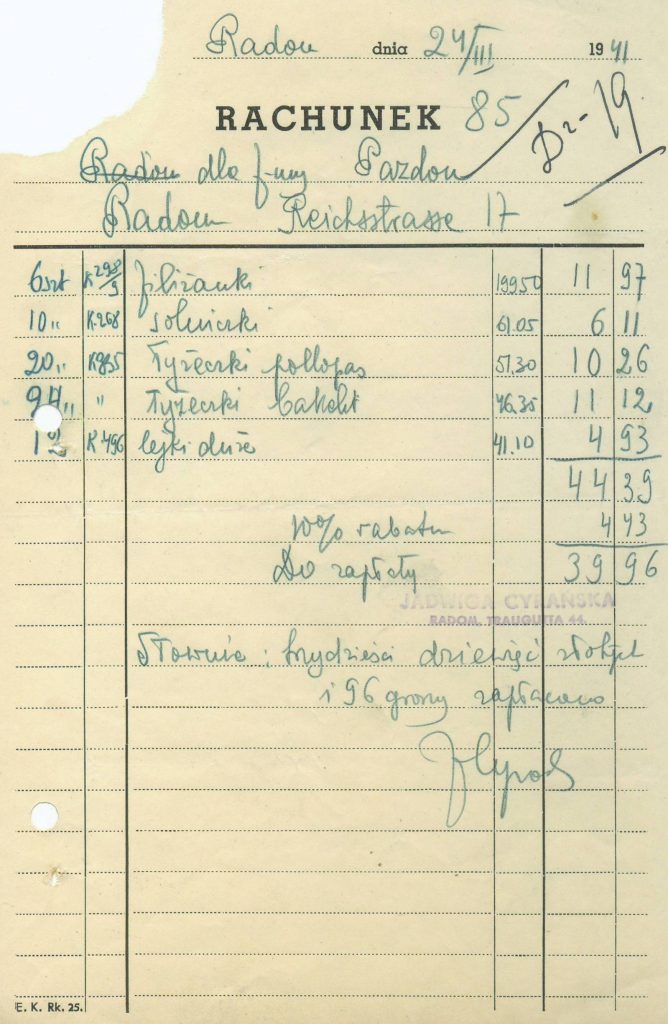 Radom dnia 24/III 1941
RACHUNEK 85
Dz- 19
Radom dla f-my Pazdon
Radom Reichsstrasse 17
6 szt K 298/9 filiżanki 199.50 11 97
10 " K.268 solniczki 61.05 6 11
20 " K835 łyżeczki pollopas 51.30 10 26
24 " " łyżeczki bakelit 46.35 11 12
12 K 496 lejki duże 41.10 4 93
44 39
10% rabatu 4 43
Do zapłaty 39 96
JADWIGA CYRAŃSKA
RADOM, TRAUGUTTA 44.
Słownie: trzydzieści dziewięć złotych
i 96 groszy zapłacono
E. K. Rk. 25.